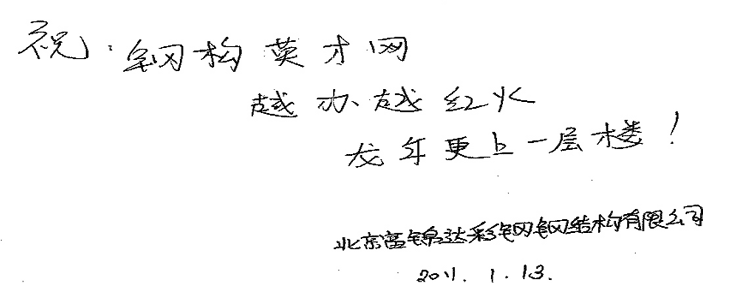 祝：钢构英才网
越办越红火
龙年更上一层楼！
北京富锦达彩钢钢结构有限公司
2011.1.13.